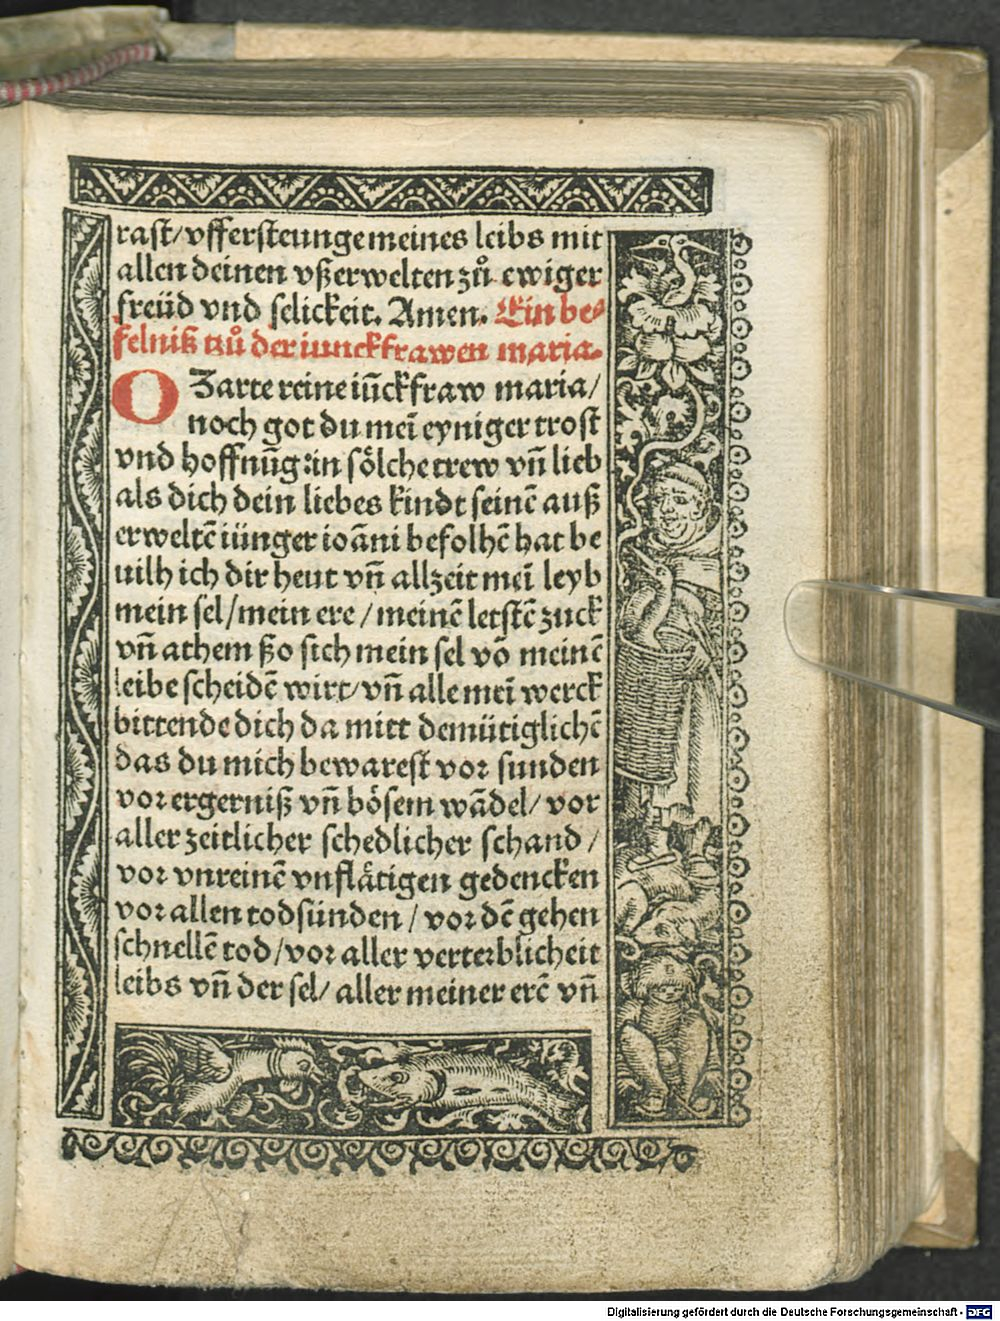 rast/vffersteunge meines leibs mit
allen deinen vßerwelten zuͦ ewiger
freüd vnd selickeit. Amen. Ein be⸗
felniß tzuͦ der iunckfrawen maria.
O Zarte reine iūckfraw maria/
noch got du meī eyniger trost
vnd hoffnūg:in sölche trew vn̄ lieb
als dich dein liebes kindt seinē auß
erweltē iünger ioāni befolhē hat be
uilh ich dir heut vn̄ allzeit meī leyb
mein sel/mein ere/meinē letstē zuck
vn̄ athem ßo sich mein sel vō meinē
leibe scheidē wirt/vn̄ alle meī werck
bittende dich da mitt demütiglichē
das du mich bewarest vor sunden
vor ergerniß vn̄ bösem wādel/vor
aller zeitlicher schedlicher schand/
vor vnreinē vnflätigen gedencken
vor allen todsünden/vor dē gehen
schnellē tod/vor aller verterblicheit
leibs vn̄ der sel/aller meiner erē vn̄
Digitalisierung gefördert durch die Deutsche Forschungsgemeinschaft - DFG